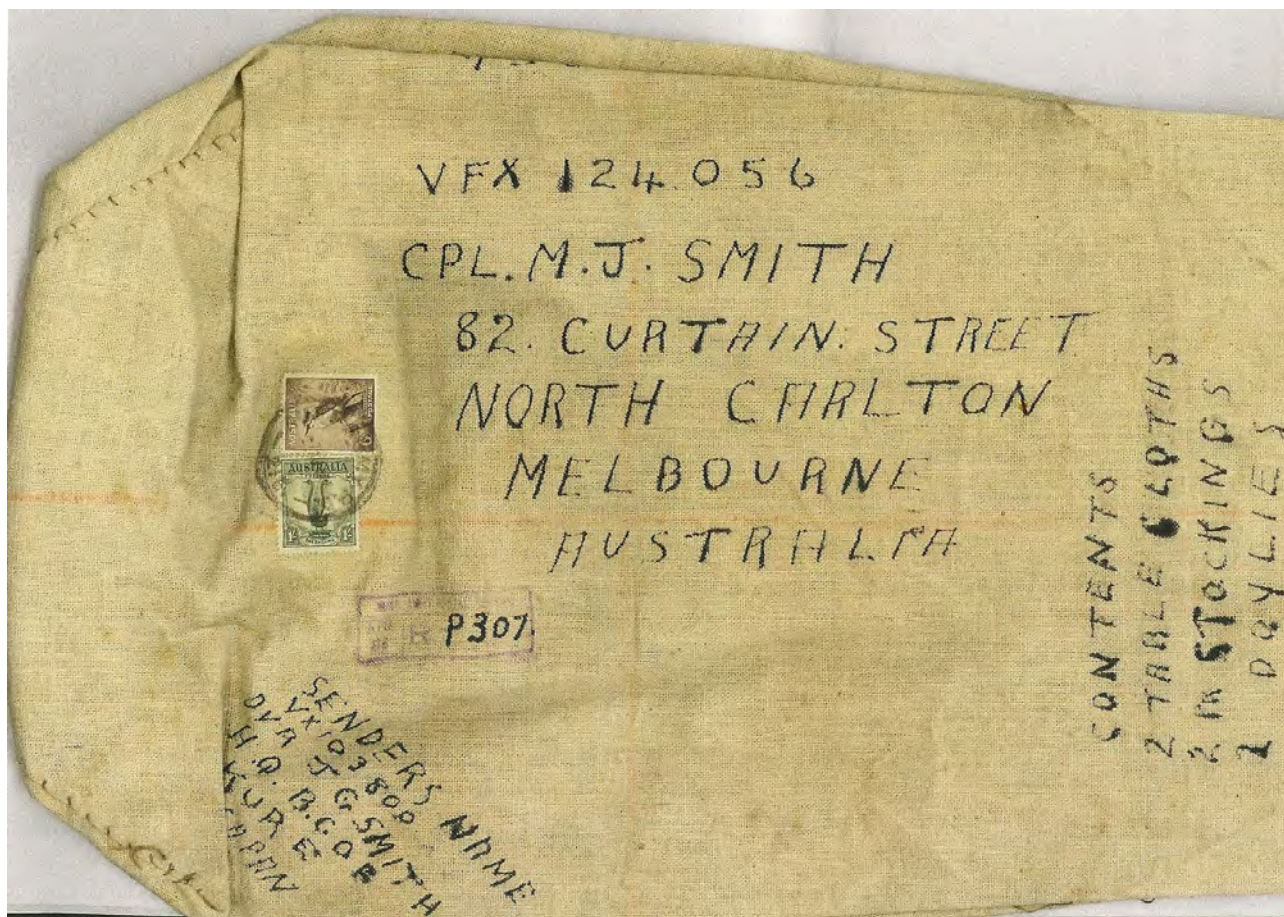 VFX 124056
CPL. M. J. SMITH
82. CURTAIN. STREET
NORTH CARLTON
MELBOURNE
AUSTRALIA
AUSTRALIA
1/-
R
P307.
SENDERS NAME
VX 103800
DVR J G SMITH
H.Q. B.C.O.F
KURE
JAPAN
CONTENTS
2 TABLE CLOTHS
2 PR STOCKINGS
1 DOYLIES